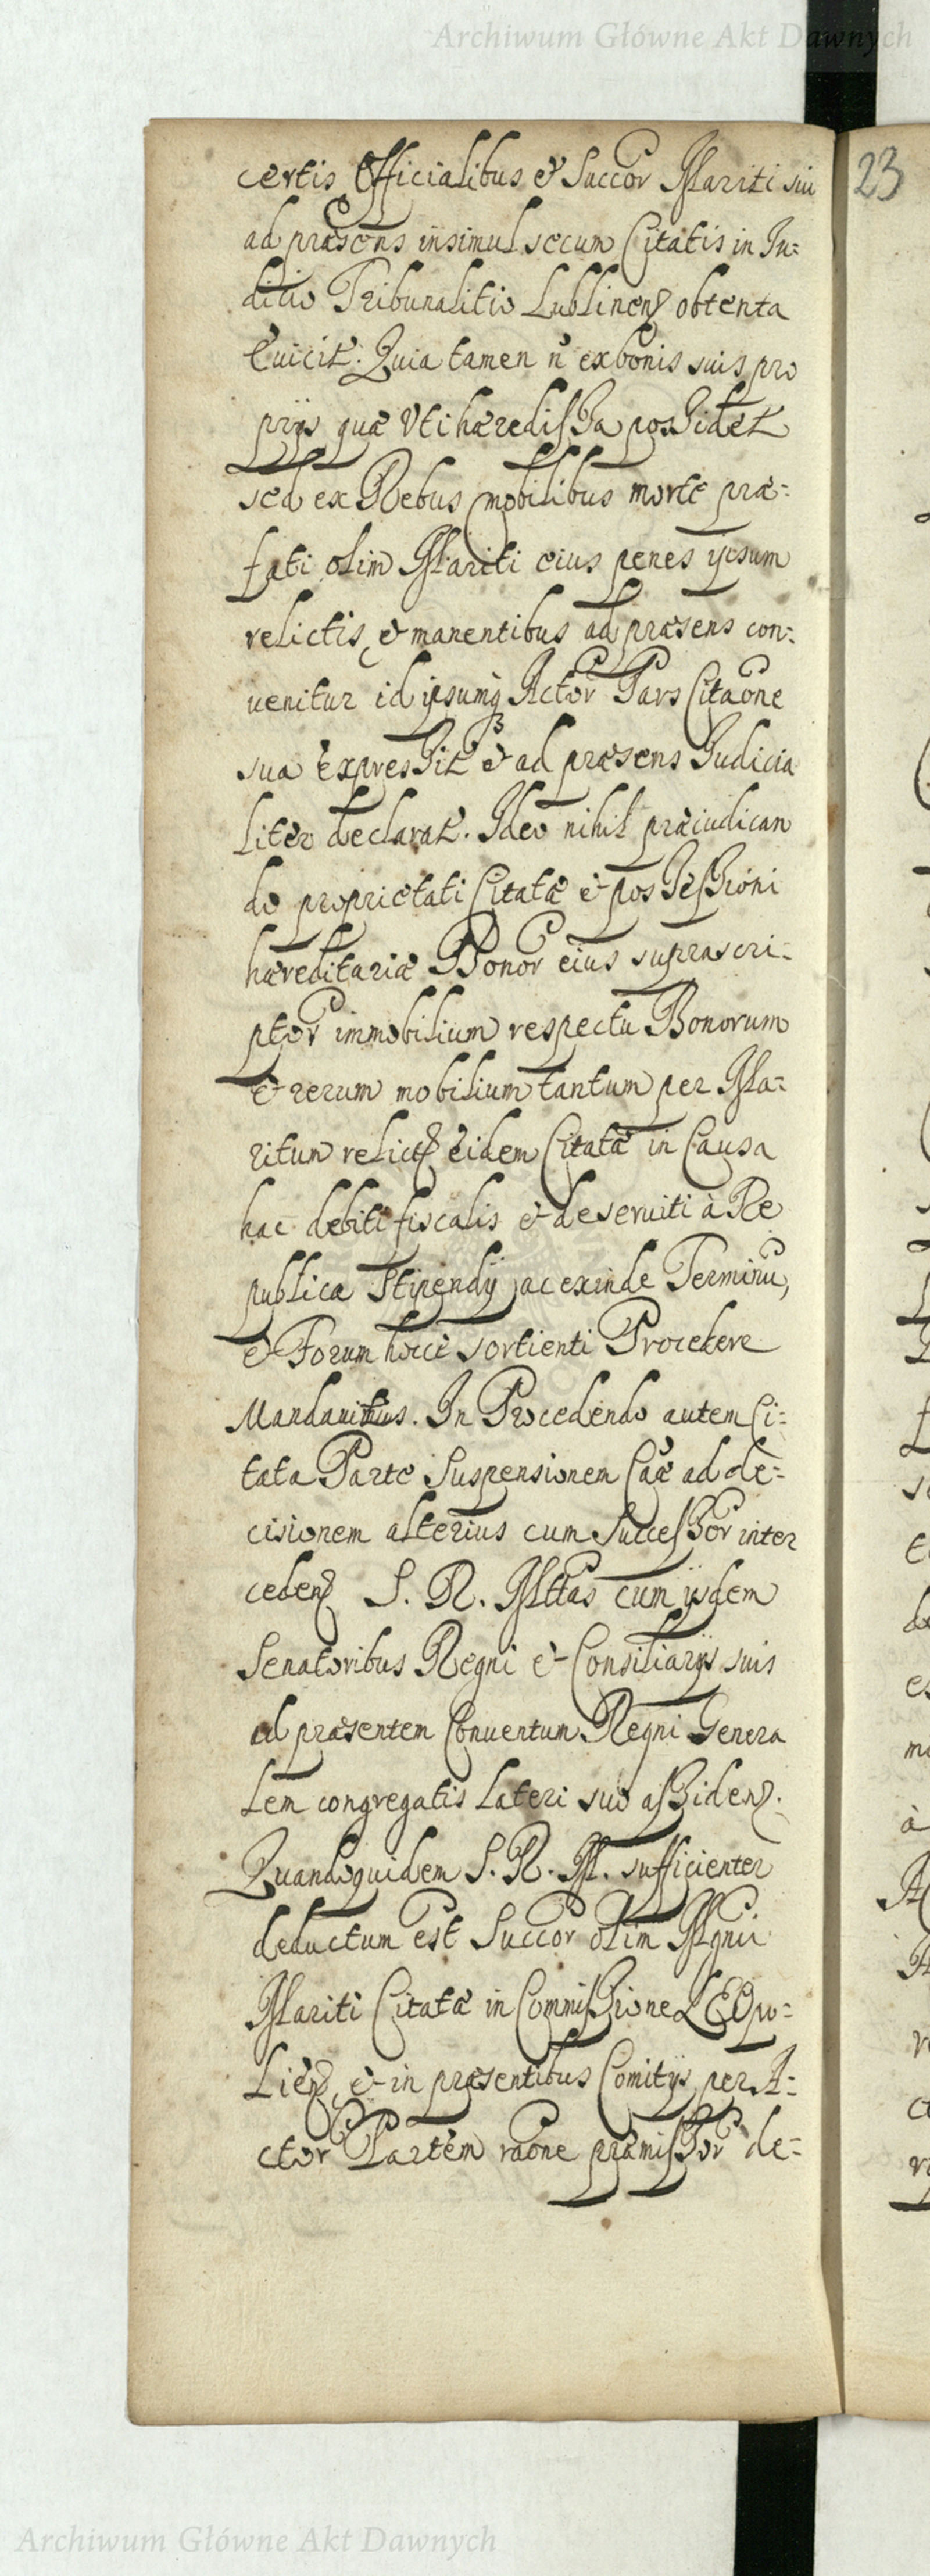 Archiwum Główne Akt Dawnych
certis Officialibus et Succor Mariti sui
23
ad præsens insimul secum Citatis in Iu=
ditio Tribunalitio Lublinen obtenta
euicit. Quia tamen n exbonis suis pro
prijs quæ Vti hæredissa possidet
sed ex Rebus mobilibus morte præ=
fati olim Mariti eius penes ipsum
relictis, et manentibus ad præsens con=
uenitur id ipsumq Actor Pars Citaone
sua expressit et ad præsens Iudicia
liter declarat. Ideo nihil præiudican
do proprietati Citatæ et possessioni
hæreditariæ Bonor eius suprascri=
ptor immobilium respectu Bonorum
et rerum mobilium tantum per Ma=
ritum relict eidem Citatæ in Causa
hac debiti fiscalis et deseruiti à Re
publica Stipendij ac exinde Terminu,
et Forum hocce sortienti Procedere
Mandauimus. In Procedendo autem Ci=
tata Parte Suspensionem Cae ad de=
cisionem alterius cum Successor inter
ceden S. R. Mttas cum ijsdem
Senatoribus Regni et Consiliarijs suis
ad præsentem Conuentum Regni Genera
lem congregatis Lateri suo assiden.
Quandoquidem S. R. M. sufficienter
deductum est Succor olim Mgnci
Mariti Citatæ in Commissione LEOpo=
lien, et in præsentibus Comitijs per A=
ctor Partem raone præmissor de=
Archiwum Główne Akt Dawnych